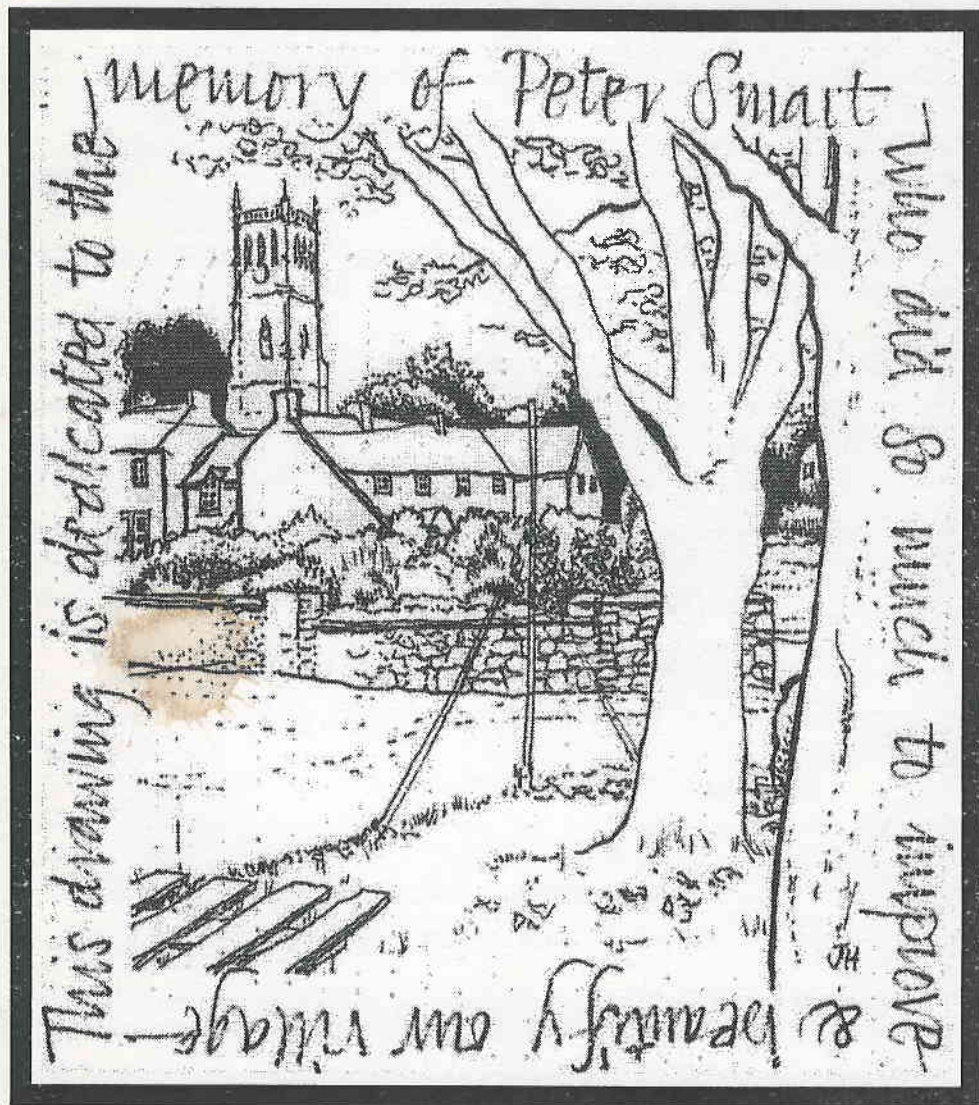 This drawing is dedicated to the
memory of Peter Smart
who did so much to improve
& beautify our village
JH